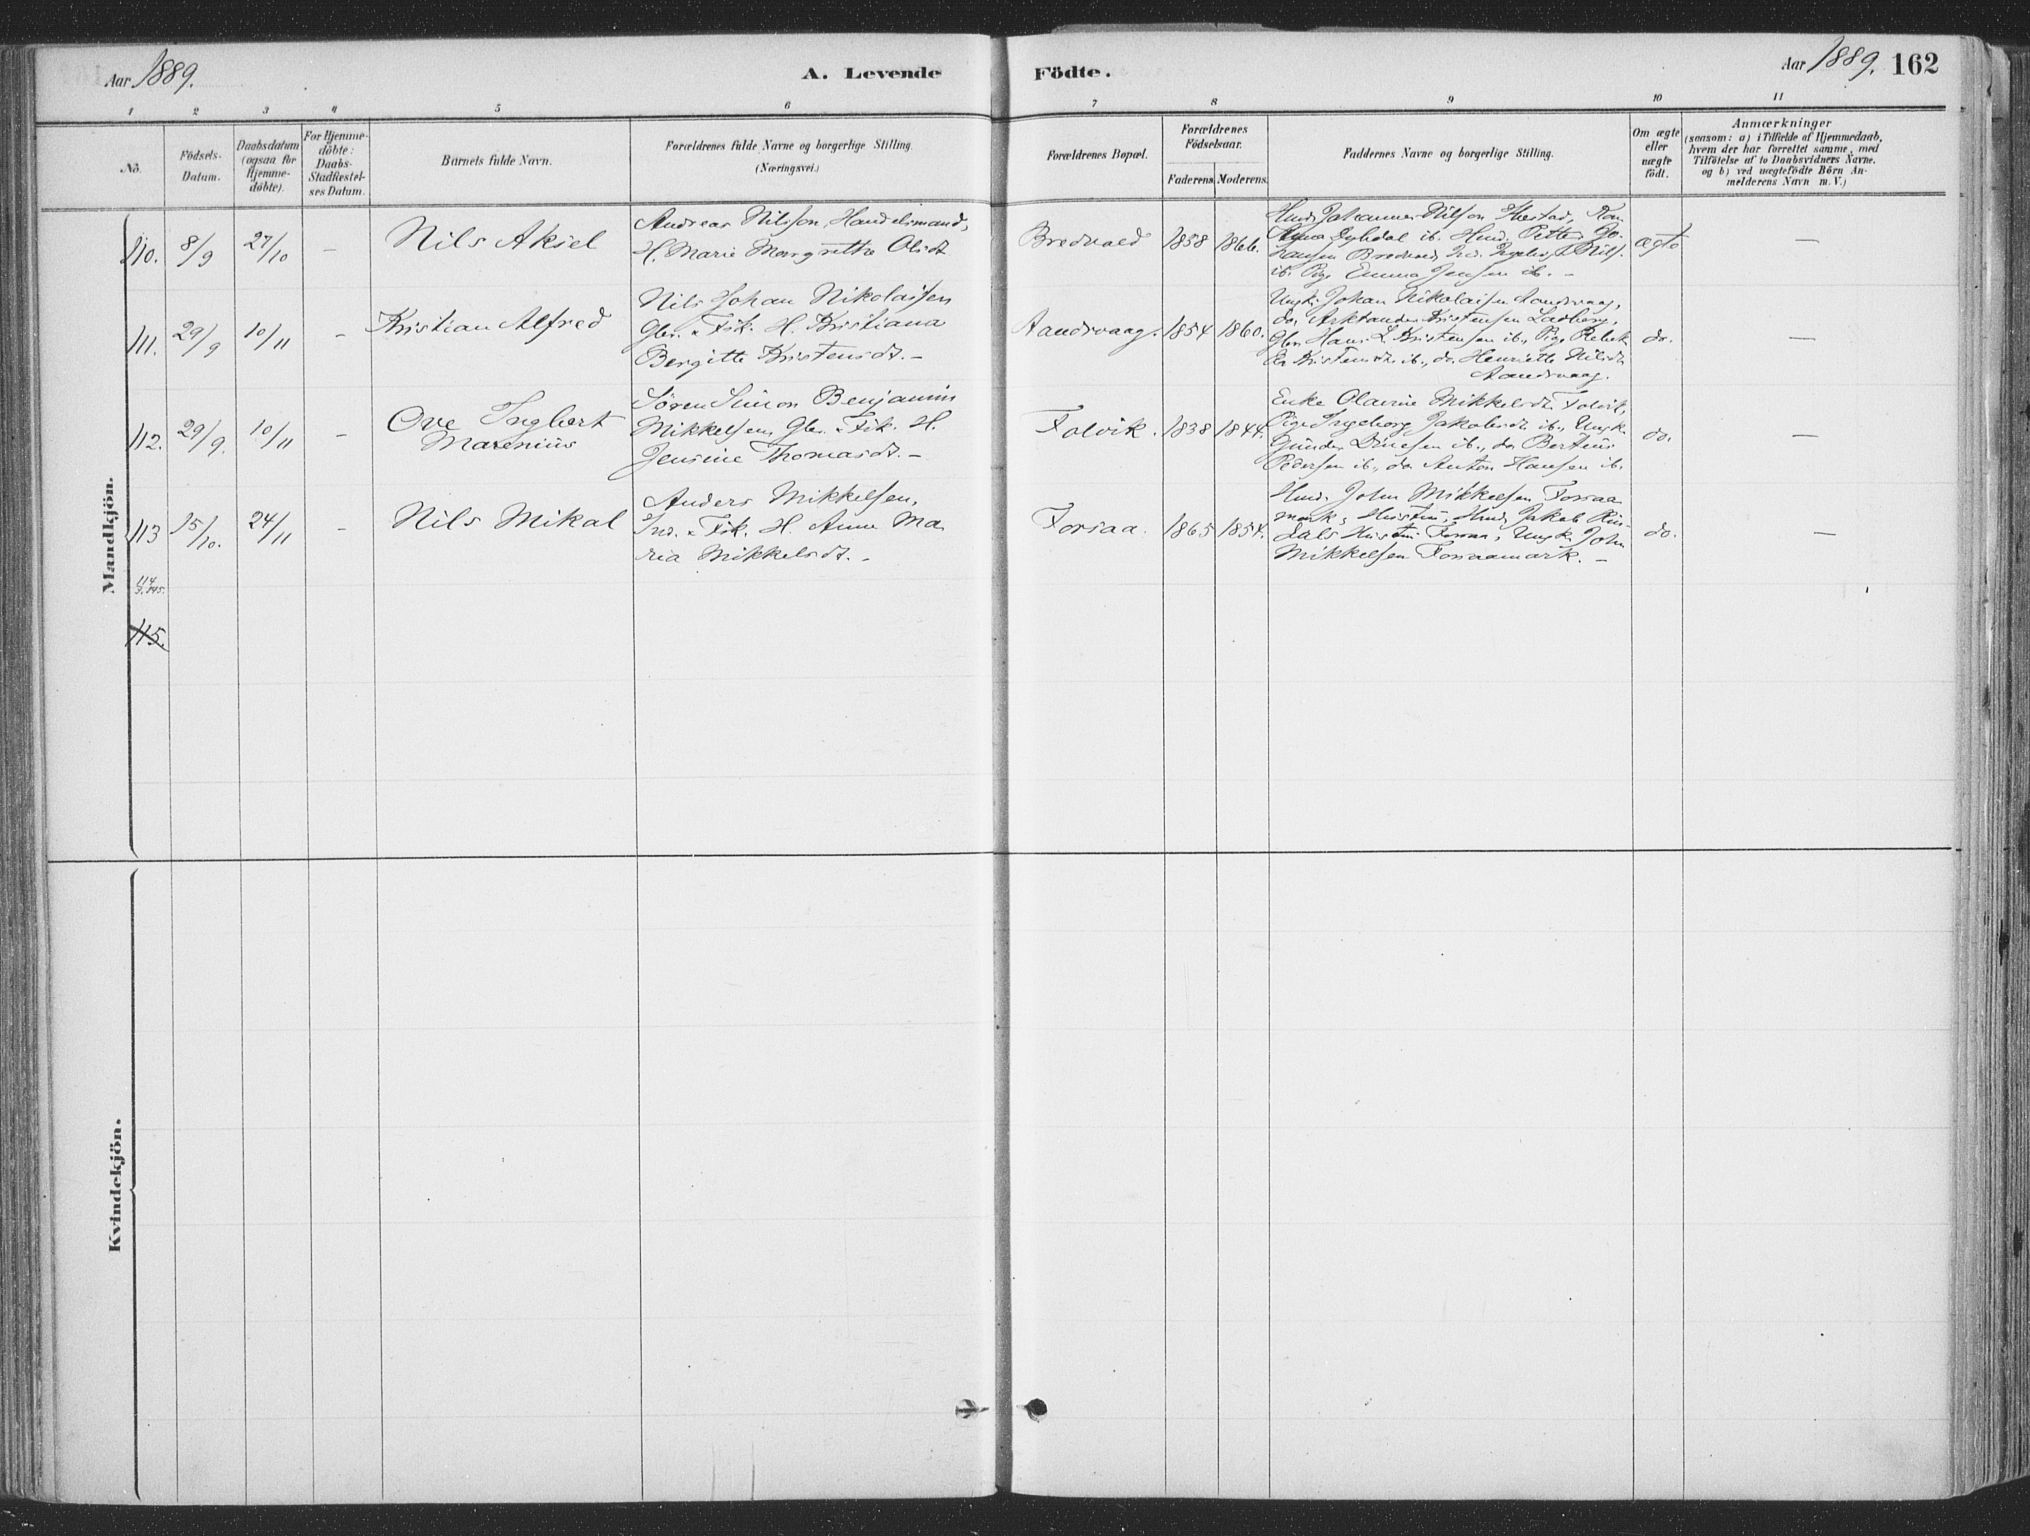 Aar 1889.
A. Levende
Födte.
Aar 1889.
162
1 2 3 4 5 6 7 8 9 10 11
No.
Födsels-
Datum.
Daabsdatum
(ogsaa for
Hjemme-
döbte).
For Hjemme-
döbte:
Daabs-
Stadfæstel-
ses Datum.
Barnets fulde Navn.
Forældrenes fulde Navne og borgerlige Stilling.
(Næringsvei.)
Forældrenes Bopæl.
Forældrenes
Födselsaar.
Faderens. Moderens.
Faddernes Navne og borgerlige Stilling.
Om ægte
eller
uægte
födt.
Anmærkninger
(saasom: a) i Tilfælde af Hjemmedaab,
hvem der har forrettet samme, med
Tilföielse af to Daabsvidners Navne.
og b) ved uægtefödte Börn An-
melderens Navn m. V.)
Mandkjön.
110. 8/9 27/10 –
Nils Aksel
Andreas Nilsson, Handelsmand,
H. Marie Margrethe Olsdt
Bredvold 1858 1866.
Johannes Nilson
ib. Petter Jo-
hansen
ib. Pige Emma Jensen ib. –
ægte
–
111. 29/9 10/11 –
Kristian Alfred
Nils Johan Nikolaisen
Gbr. & Fisk. H. Kristiana
Bergitte Kristensdt. –
Aandsvaag. 1854 1860.
Ungk. Johan Nikolaisen Aandsvaag,
do. Arktander Kristensen Ladberg,
Gbr. Hans L. Kristensen ib., Pige Rebek
ka Kristensdt ib., do. Henriette Nilsdt
Aandsvaag.
do.
–
112. 29/9. 10/11 –
Ove Ingbert
Marenius
Sören Simon Benjamin
Mikkelsen, Gbr. & Fisk. H.
Jensine Thomasdt. –
Folvik. 1838 1844.
Enke Olavine Mikkelsdt. Folvik,
Pige Ingeborg Jakobsdt ib., Ungk.
Gunder ib., do Bertius
Pedersen ib., do Anton Hansen ib.
do.
–
113 15/10. 24/11 –
Nils Mikal
Anders Mikkelsen,
Ind. & Fisk. H. Anne Ma
ria Mikkelsdt. –
Forsaa. 1865 1854.
John Mikkelsen Forsaa
mark, Hustru, Jakob Rin-
dals Hustru Forsaa, Ungk. John
Mikkelsen Forsaamark. –
do.
–
114
115.
Kvindekjön.